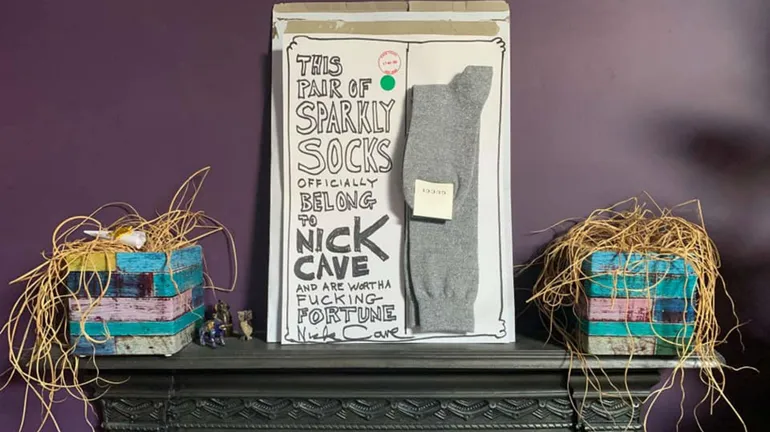 THIS
PAIR OF
SPARKLY
SOCKS
OFFICIALLY
BELONG
TO
NICK
CAVE
AND ARE WORTH A
FUCKING
FORTUNE
Nick Cave